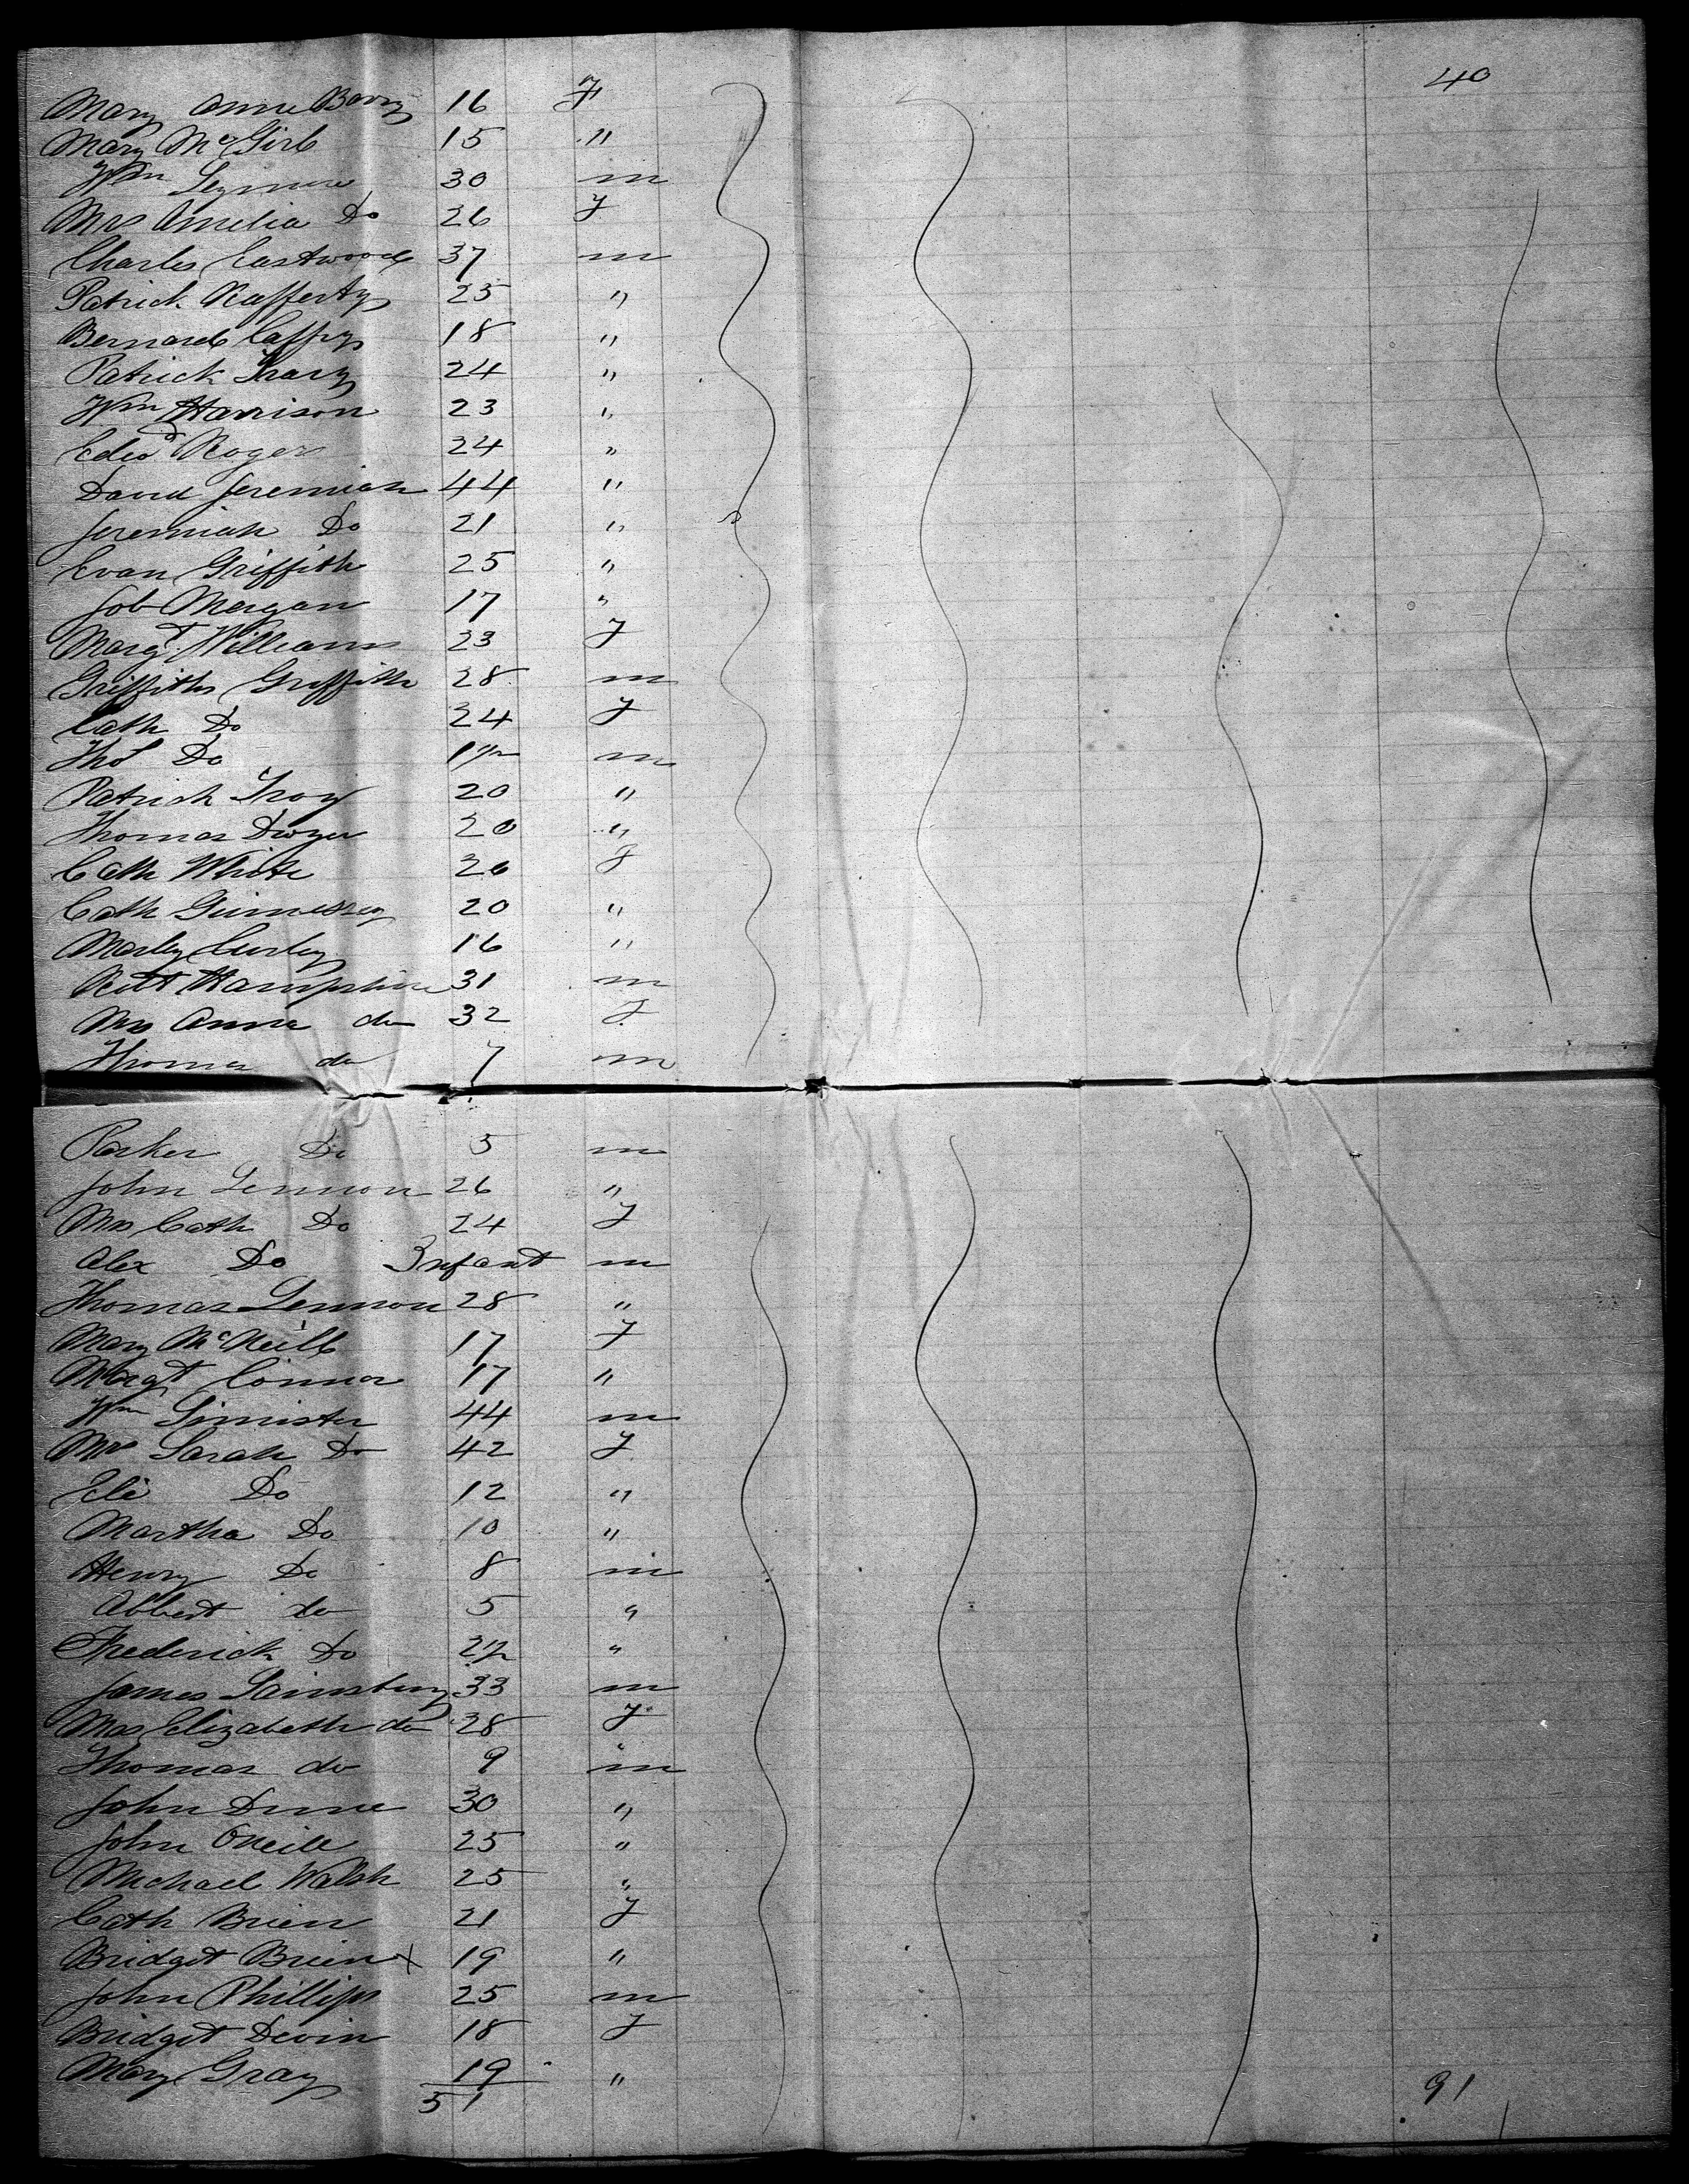 40
Mary Anne Barry 16 F
Mary McGirl 15 "
Wm Seymure 30 m
Mrs Amelia Do 26 F
Charles Eastwood 37 m
Patrick Rafferty 25 "
Bernard Caffry 18 "
Patrick Tracy 24 "
Wm Harrison 23 "
Edwd Roger 24 "
David Jeremiah 44 "
Jeremiah Do 21 "
Evan Griffith 25 "
Job Morgan 17 "
Margt Williams 23 F
Griffiths Griffith 28 m
Cath Do 24 F
Thos Do 1 1/2 m
Patrick Troy 20 "
Thomas Dwyer 20 "
Cath White 20 F
Cath 20 "
Curley 16 "
Robt Hampshire 31 m
Mrs Anna do 32 F
Thomas do 7 m
Parker Do 5 m
John Lennon 26 "
Mrs Cath Do 24 F
Alex Do Infant m
Thomas Lennon 28 "
Mary McNeill 17 F
Margt Connor 17 "
Wm Simister 44 m
Mrs Sarah Do 42 F
Do 12 "
Martha Do 10 "
Henry Do 8 m
Albert do 5 "
Frederick Do 2 1/2 "
James Sainsbury 33 m
Mrs Elizabeth do 28 F
Thomas do 9 m
John Dunne 30 "
John ONeill 25 "
Michael Walsh 25 "
Cath Brien 21 F
Bridget Brien x 19 "
John Phillips 25 m
Bridget Devin 18 F
Mary Gray 19 "
51
91